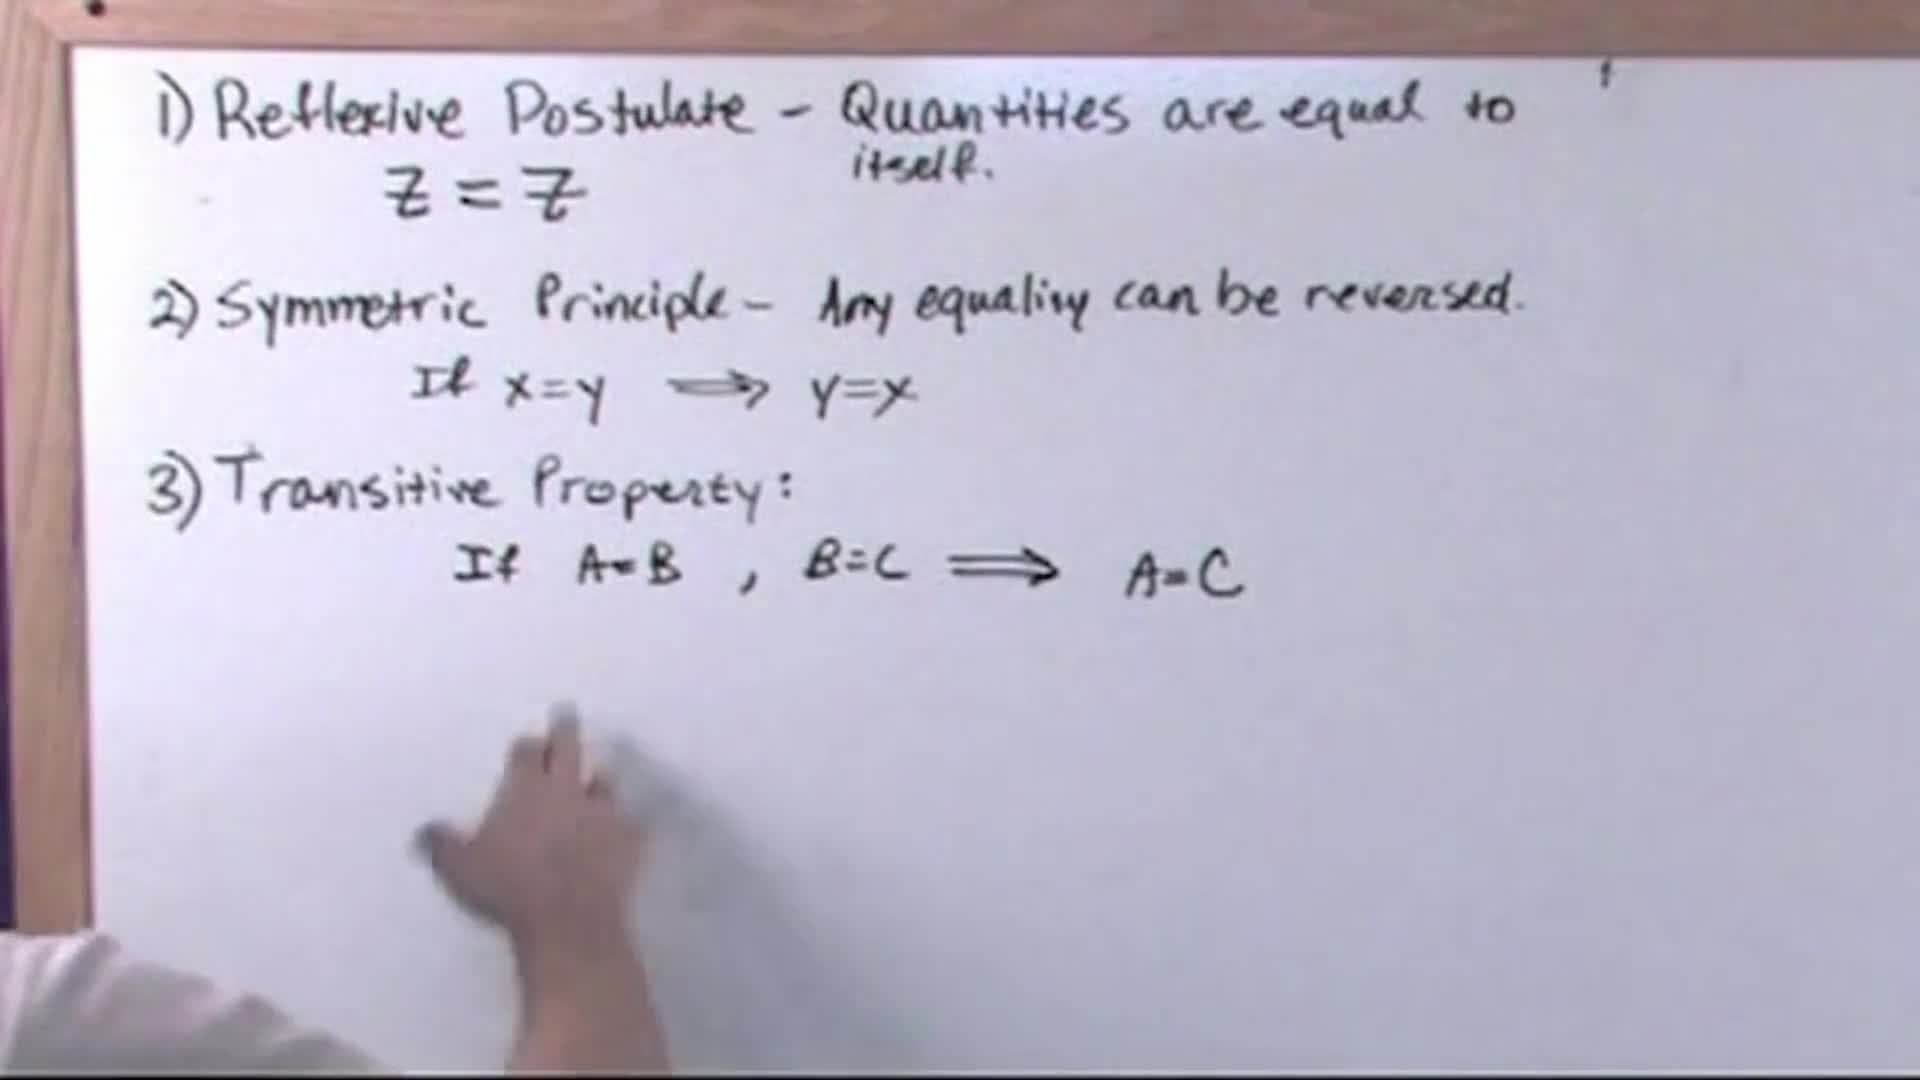 1) Reflexive Postulate - Quantities are equal to
itself.
Z = Z
2) Symmetric Principle - Any equality can be reversed.
If x=y ⟹ y=x
3) Transitive Property:
If A=B , B=C ⟹ A=C